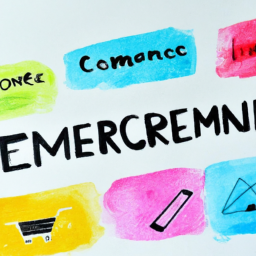 ONEC Comancc
EMERCREMN